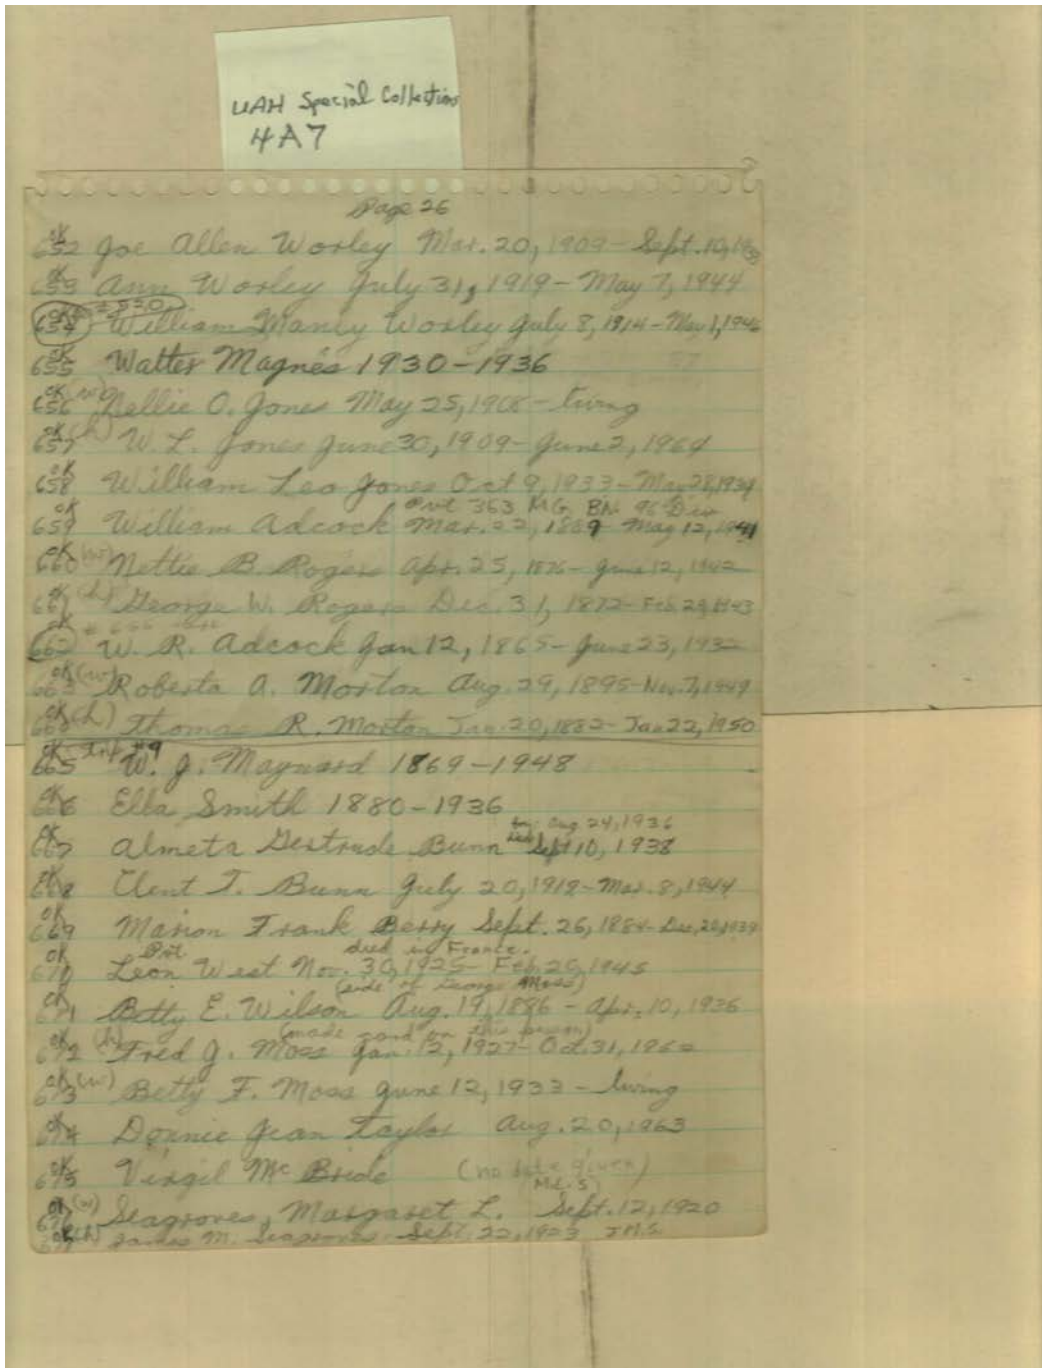 UAH Special Collections
4A7
Page 26
OK
652 Joe Allen Worley Mar. 20, 1909 - Sept. 10, 19
OK
653 Ann Worley July 31, 1919 - May 7, 1944
OK # 520
654 William Maney Worley July 8, 1914 - May 1, 1946
OK
655 Walter Magnes 1930 - 1936
OK (w)
656 Nellie O. Jones May 25, 1908 - living
OK (h)
657 W. L. Jones June 30, 1909 - June 2, 1964
OK
658 William Leo Jones Oct 9, 1933 - May 28, 1934
OK Pvt 363 M.G. BN. 96 Div
659 William Adcock Mar. 22, 1889 May 12, 1941
OK (w)
660 Nettie B. Rogers Apr. 25, 1876 - June 12, 1942
OK (h)
661 George W. Rogers Dec. 31, 1872 - Feb. 29, 1943
OK
662 W. R. Adcock Jan 12, 1865 - June 23, 1932
OK (w)
663 Roberta A. Morton Aug. 29, 1895 - Nov. 7, 1949
OK (h)
664 Thomas R. Morton Jan. 20, 1882 - Jan 22, 1950
OK #9
665 W. J. Maynard 1869 - 1948
OK
666 Ella Smith 1880 - 1936
Aug. 24, 1936
OK
667 Almeta Gertrude Bunn Sept 10, 1938
OK
668 Clent T. Bunn July 20, 1918 - Mar. 8, 1944
OK
669 Marion Frank Berry Sept. 26, 1884 - Dec. 20, 1939
OK Pvt. died in France.
670 Leon West Nov. 30, 1925 - Feb. 20, 1945
(side of George Moss)
671 Betty E. Wilson Aug. 19, 1886 - Apr. 10, 1936
OK (h) (made card on this person)
672 Fred J. Moss Jan. 12, 1927 - Oct. 31, 1962
OK (w)
673 Betty F. Moss June 12, 1933 - living
OK
674 Donnie Jean Taylor Aug. 20, 1963
OK
675 Virgil McBride (no date given)
M.L.S.
OK (w)
676 Seagroves, Margaret L. Sept. 12, 1920
OK (h)
677 James M. Seagroves Sept. 22, 1923 J.M.S.